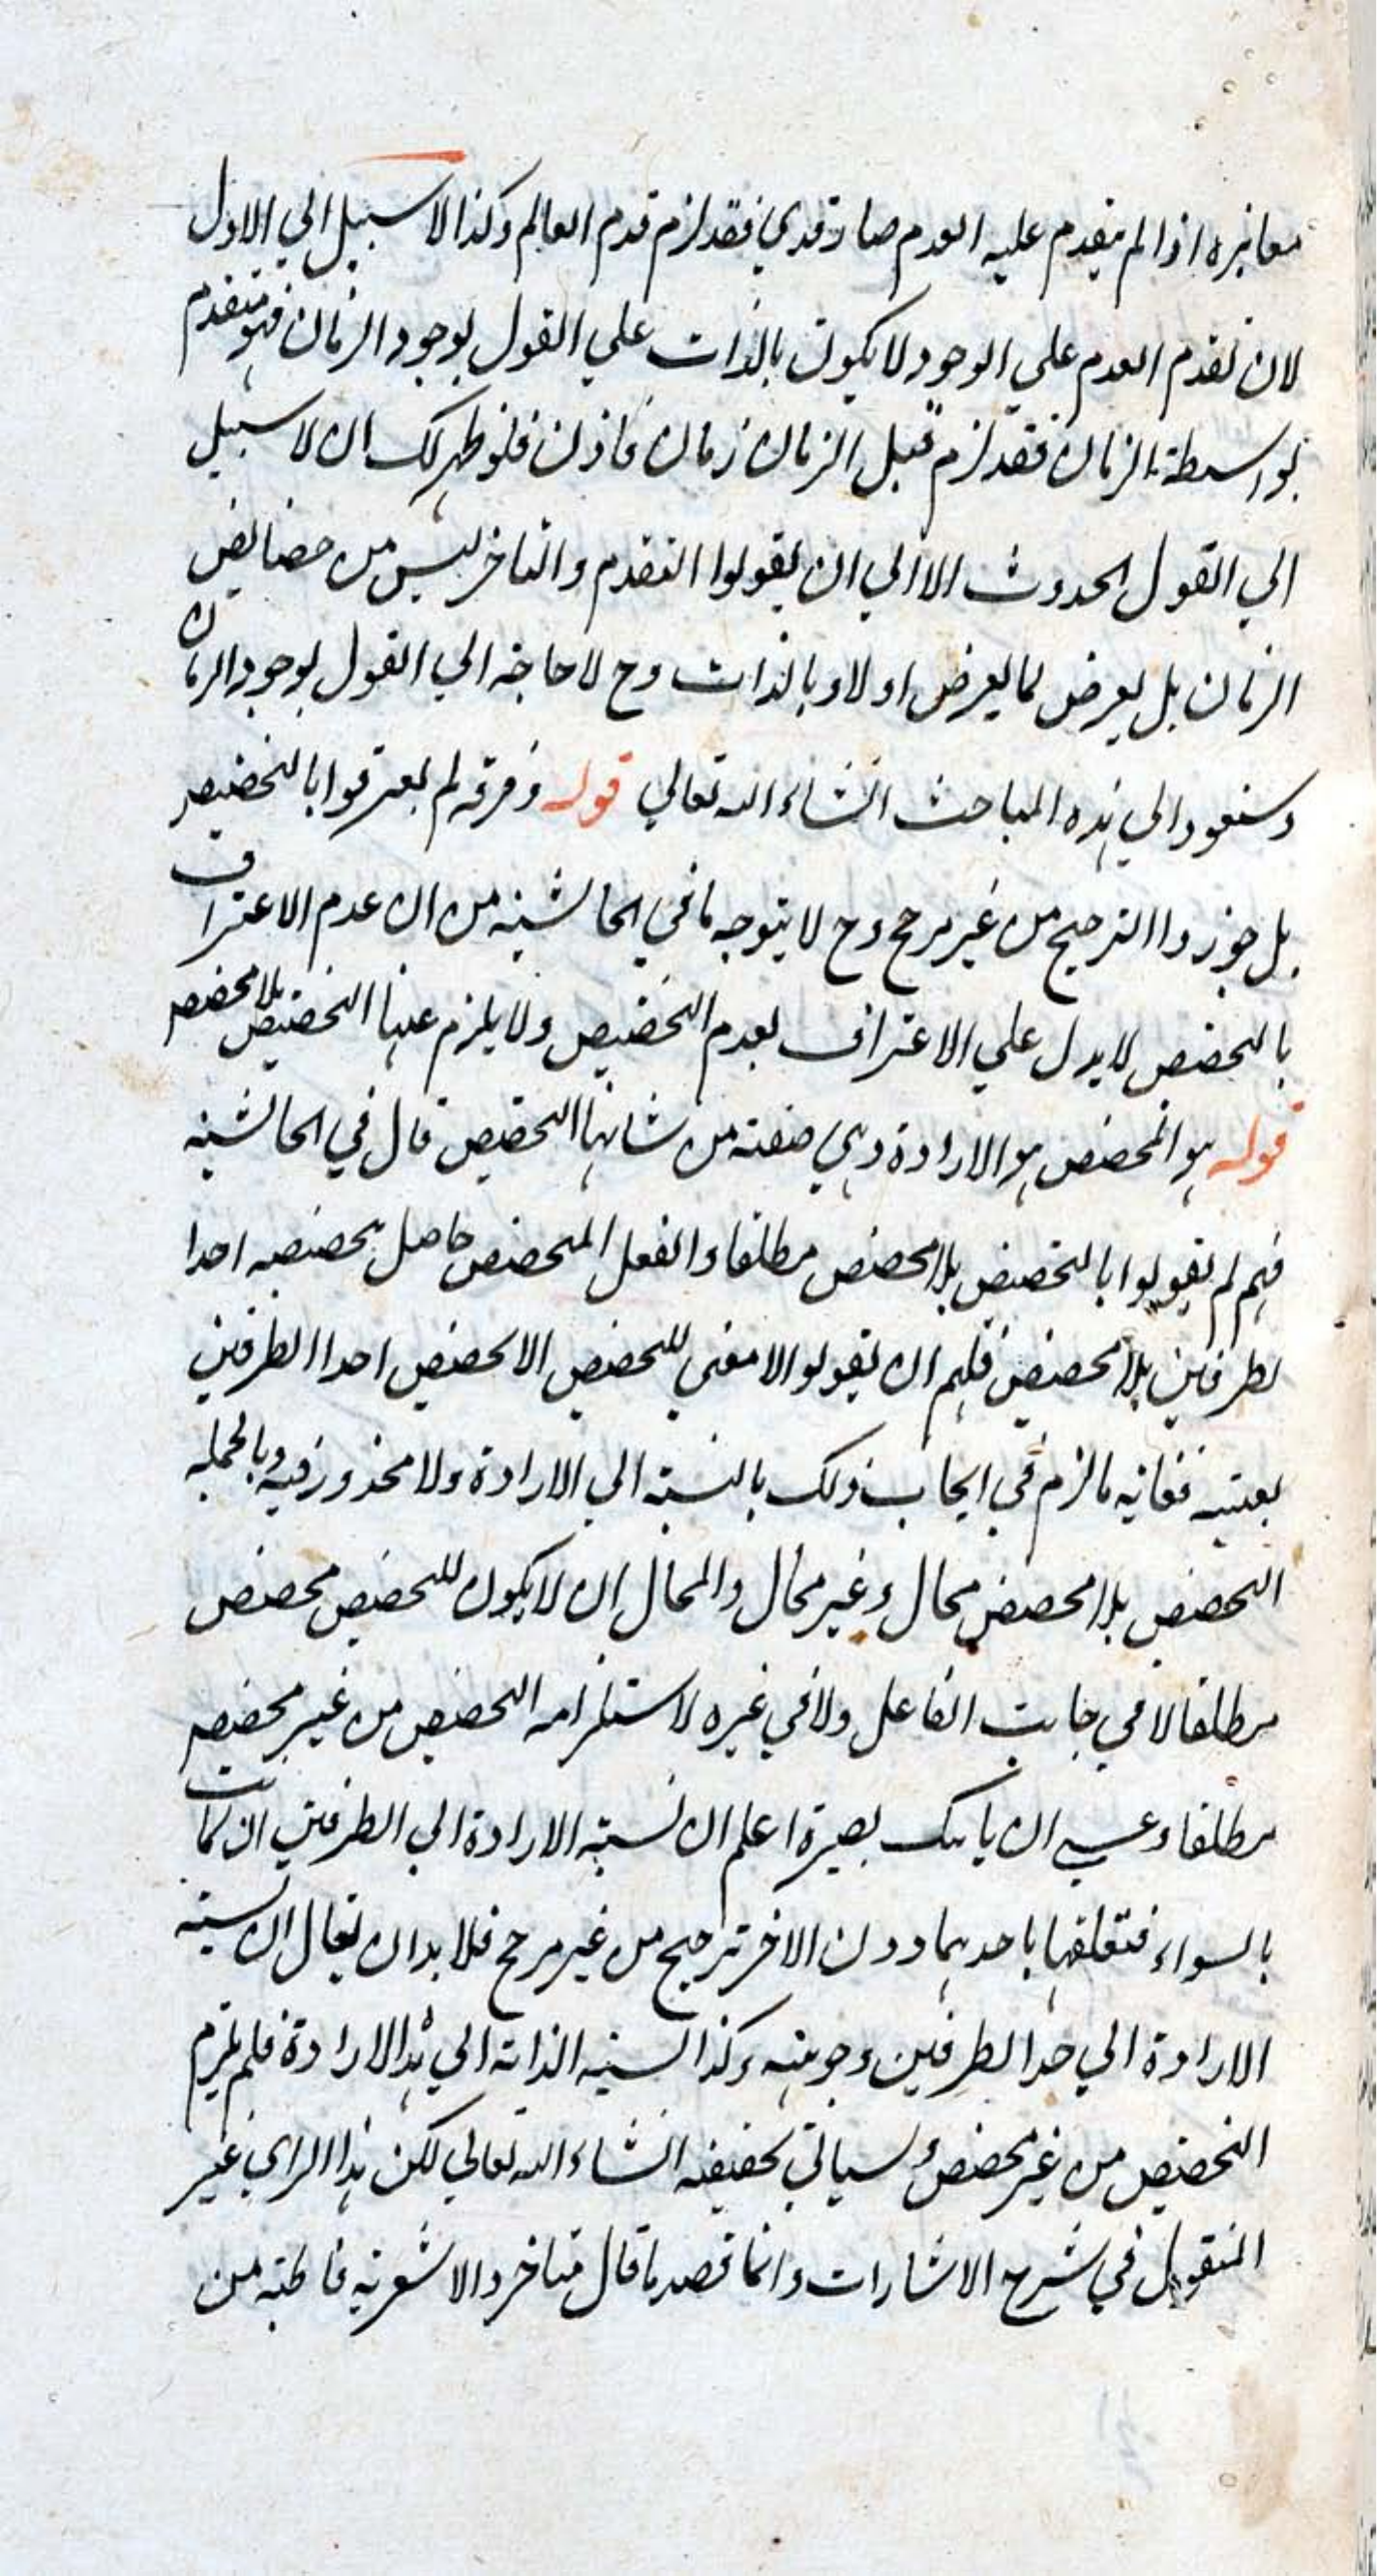 مغايره اذا لم يتقدم عليه العدم صار قديما فقد لزم قدم العالم وكذا لا سبيل الي الاول
لان تقدم العدم علي الوجود لا يكون بالذات علي القول بوجود الزمان فهو متقدم
بواسطة الزمان فقد لزم قبل الزمان زمان فاذن فلو ظهر لك ان لا سبيل
الي القول الحدوث الا الي ان يقولوا التقدم والتاخر ليس من خصايص
الزمان بل يعرض لما يعرض اولا وبالذات وح لا حاجة الي القول بوجود الزمان
وسنعود الي هذه المباحث انشاء الله تعالي قوله وفرقه لم يعترفوا بالتخصيص
بل جوزوا الترجيح من غير مرجح وح لا يتوجه ما في الحاشية من ان عدم الاعتراف
بالتخصص لا يدل علي الاعتراف بعدم التخصيص ولا يلزم عنها التخصيص بلا مخصص
قوله هو المخصص هو الارادة وهي صفة من شانها التخصيص قال في الحاشية
فهم لم يقولوا بالتخصص بلا مخصص مطلقا والفعل المخصص حاصل تخصصه احدا
لطرفين بلا مخصص فلهم ان يقولوا لا معني للتخصص الا تخصص احدا الطرفين
بعينه فغايته ما لزم في ايجاب ذلك بالنسبة الي الارادة ولا محذور فيه وبالجملة
التخصص بلا مخصص محال وغير محال والمحال ان لا يكون للتخصص مخصص
مطلقا لا في جانب الفاعل ولا في غيره لاستلزامه التخصيص من غير مخصص
مطلقا وعسي ان ياتيك بصيرة اعلم ان نسبة الارادة الي الطرفين ان كانت
بالسواء فتعلقها باحدهما دون الاخر ترجيح من غير مرجح فلا بد ان يقال ان نسبة
الارادة الي احد الطرفين وجوبية وكذا نسبة الذات الي هذا الارادة فلم يلزم
التخصيص من غير مخصص وسياتي تحقيقه انشاء الله تعالي لكن هذا الراي غير
المنقول في شرح الاشارات وانما قصد ما قال متاخروا الاشعرية قاطبة من